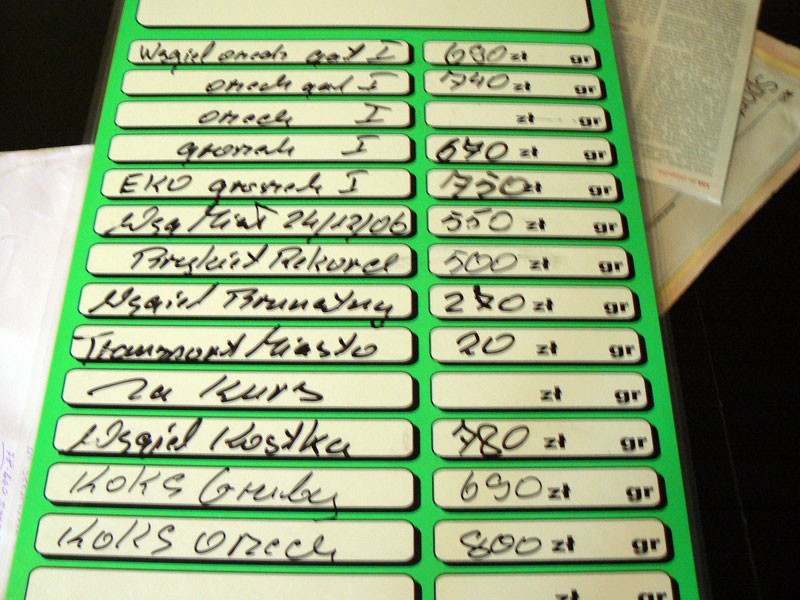 Węgiel orzech gat I 690 zł gr
orzech gat I 740 zł gr
orzech I zł gr
groszek I 670 zł gr
EKO groszek I 750 zł gr
Węg Miał 24/12/06 550 zł gr
Brykiet Rekord 500 zł gr
Węgiel Brunatny 270 zł gr
Transport Miasto 20 zł gr
za kurs zł gr
Węgiel Kostka 780 zł gr
KOKS Gruby 690 zł gr
KOKS orzech 800 zł gr
zł gr